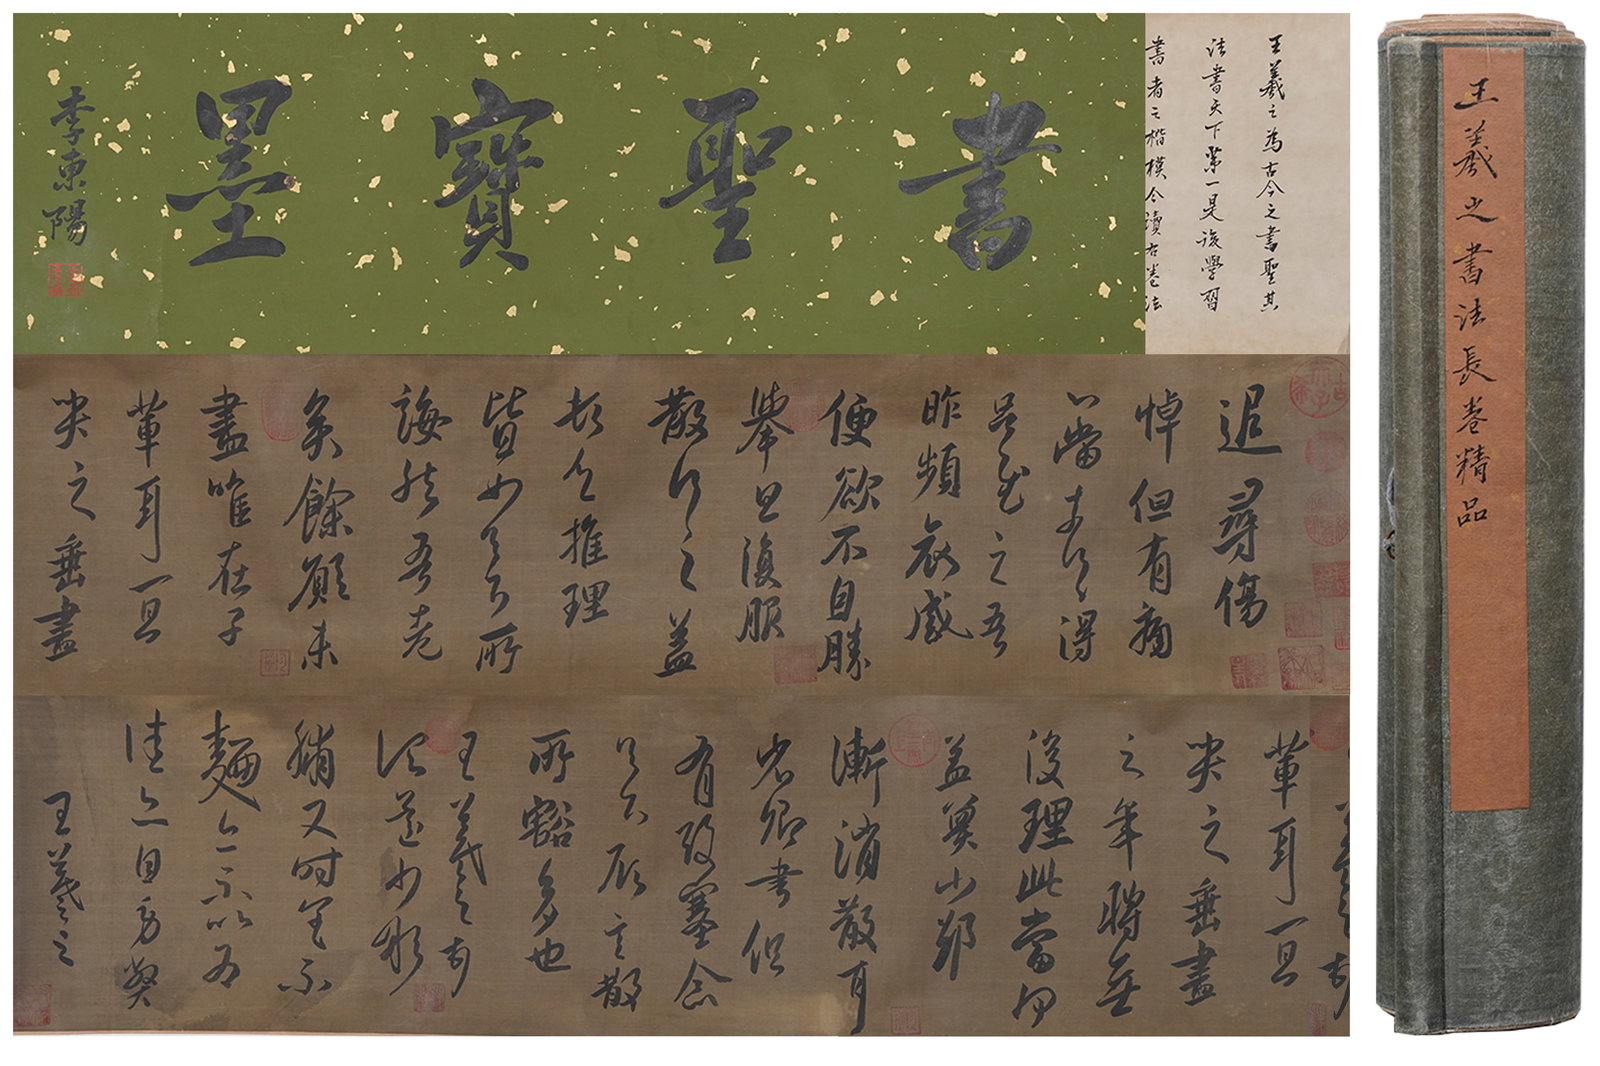 書聖寶墨
李東陽
王羲之為古今之書聖其
法書天下第一是後學習
書者之楷模今讀古卷法
王羲之書法長卷精品
追尋傷
悼但有痛
心當奈何々得
告慰之吾
昨頻哀感
便欲不自勝
舉旦復服
散行之益
頓乏推理
皆如足下所
誨然吾老
矣餘願未
盡唯在子
輩耳一旦
哭之垂盡
輩耳一旦
哭之垂盡
之年將無
復理此當何
益冀小郤
漸消散耳
省卿書但
有酸塞念
足下願言散
所豁多也
王羲之頓
又時
麵
佳自勞弊
王羲之